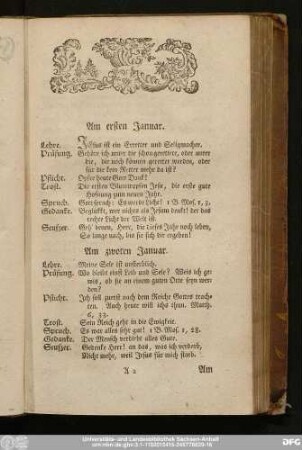 Am ersten Januar.
Lehre. JEsus ist ein Erretter und Seligmacher.
Prüfung. Gehöre ich unter die schon gerettete, oder unter
die, die noch können gerettet werden, oder
für die kein Retter mehr da ist?
Pflicht. Opfre heute Gott Dank!
Trost. Die ersten Blutstropfen Jesu, die erste gute
Hofnung zum neuen Jahr.
Spruch. Gott sprach: Es werde Licht! 1 B. Mos. 1, 3.
Gedanke. Beglückt, wer nichts als Jesum denkt! der das
rechte Licht der Welt ist.
Seufzer. Gib' denen, Herr, die dieses Jahr noch leben,
So lange nach, bis sie sich dir ergeben!
Am zwoten Januar.
Lehre. Meine Sele ist unsterblich.
Prüfung. Wo bleibt einst Leib und Sele? Weis ich ge-
wis, ob sie an einem guten Orte seyn wer-
den?
Pflicht. Ich soll zuerst nach dem Reiche Gottes trach-
ten. Auch heute will ichs thun. Matth.
6, 33.
Trost. Sein Reich geht in die Ewigkeit.
Spruch. Es war alles sehr gut! 1 B. Mos. 1, 28.
Gedanke. Der Mensch verderbt alles Gute.
Seufzer. Gedenke Herr! an das, was ich verdient,
Nicht mehr, weil Jesus für mich stirbt.
A 2 Am
Universitäts- und Landesbibliothek Sachsen-Anhalt